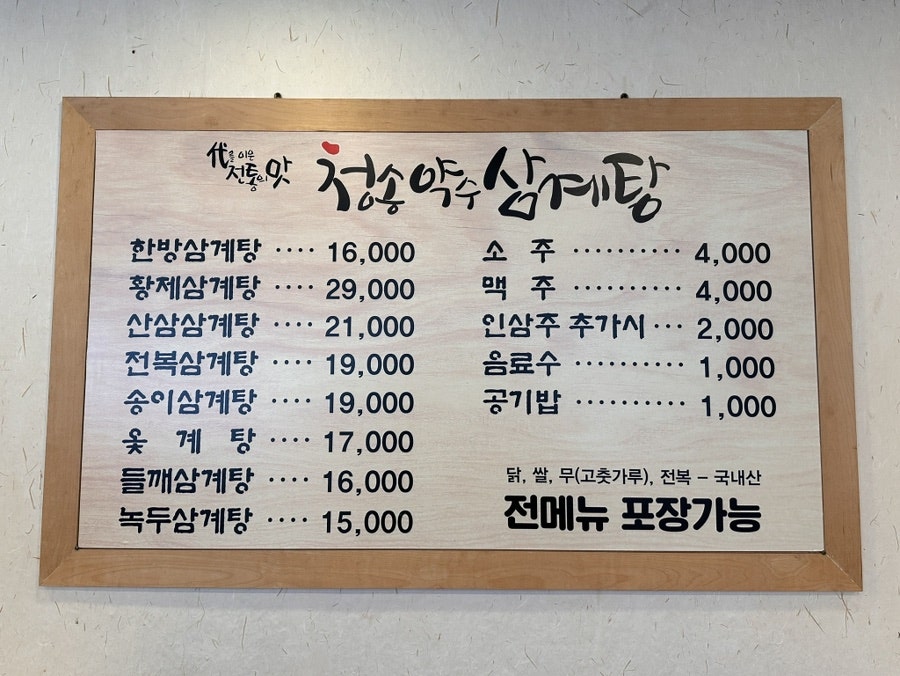 代를 이은
전통의 맛
청송약수삼계탕
한방삼계탕 ···· 16,000
황제삼계탕 ···· 29,000
산삼삼계탕 ···· 21,000
전복삼계탕 ···· 19,000
송이삼계탕 ···· 19,000
옻 계 탕 ···· 17,000
들깨삼계탕 ···· 16,000
녹두삼계탕 ···· 15,000
소 주 ·········· 4,000
맥 주 ·········· 4,000
인삼주 추가시 ··· 2,000
음료수 ·········· 1,000
공기밥 ·········· 1,000
닭, 쌀, 무(고춧가루), 전복 – 국내산
전메뉴 포장가능